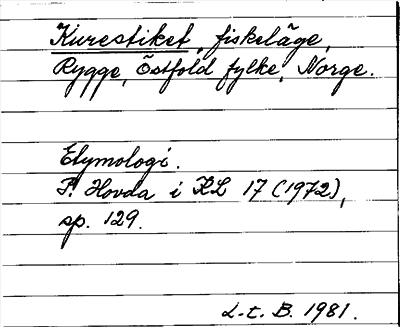 Kurestiket, fiskeläge,
Rygge, Östfold fylke, Norge.
Etymologi.
P. Hovda i KL 17 (1972),
sp. 129.
L-t. B. 1981.